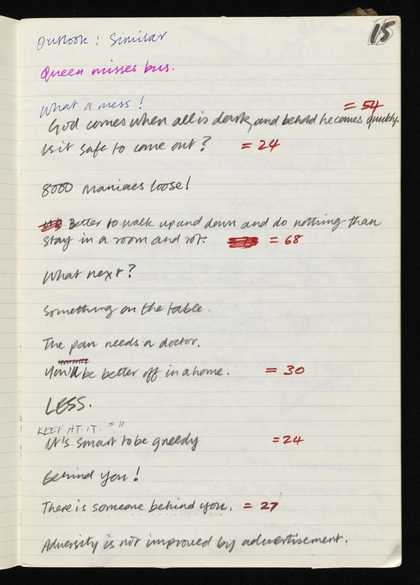 15
Outlook : Similar
Queen misses bus.
What a mess!
= 54
God comes when all is dark, and behold he comes quickly.
Is it safe to come out? = 24
8000 maniacs loose!
Better to walk up and down and do nothing than
stay in a room and rot. = 68
What next?
Something on the table.
The pan needs a doctor.
You'd be better off in a home. = 30
LESS.
KEEP AT IT. = "
It's smart to be greedy = 24
Behind you!
There is someone behind you. = 27
Adversity is not improved by advertisement.